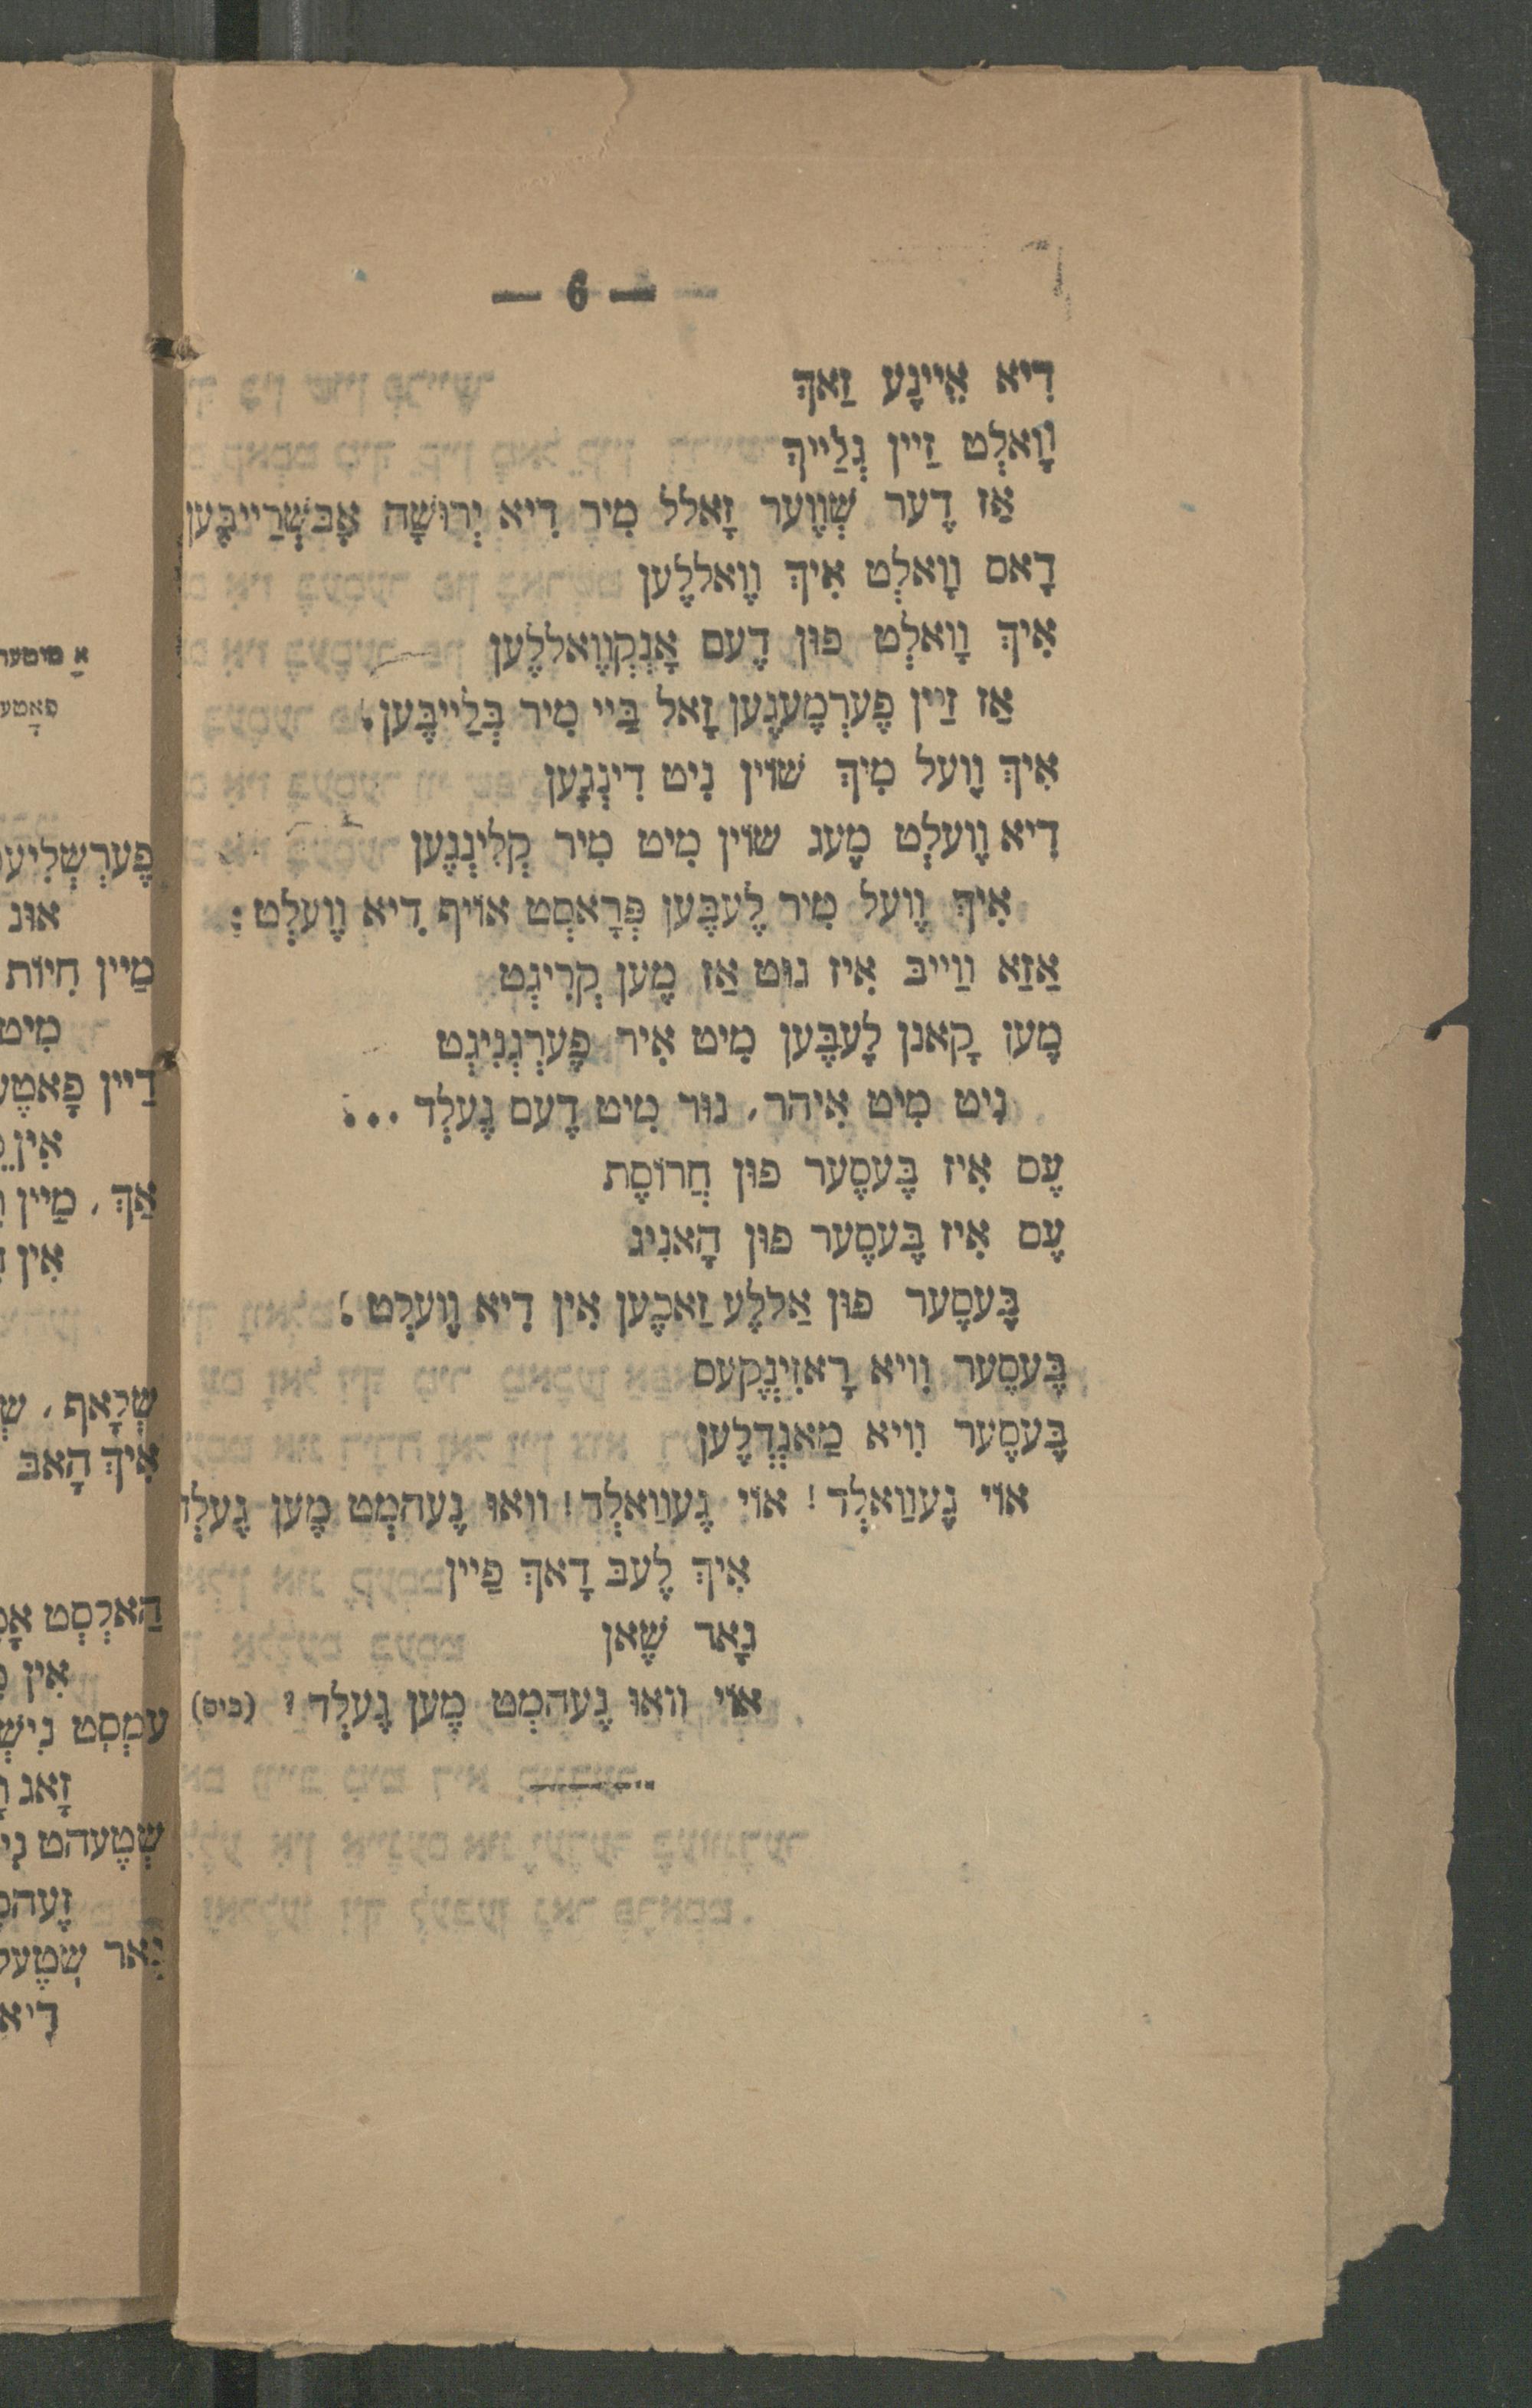 — 6 —
דִיא אֵיינֶע זַאךְ
וָואלְט זַיין גְלַייךְ
אַז דֶער שְׁוֶוער זָאלל מִיר דִיא יְרוּשָׁה אָבּשְׁרַייבֶּען
דָאס וָואלְט אִיךְ וֶואללֶען
אִיךְ וָואלְט פוּן דֶעם אָנְקְוֶואללֶען
אַז זַיין פֶערְמֶעגֶען זָאל בַּיי מִיר בְּלַייבֶּען.
אִיךְ וֶועל מִיךְ שׁוֹין נִיט דִינְגֶען
דִיא וֶועלְט מֶעג שוֹין מִיט מִיר קְלִינְגֶען
אִיךְ וֶועל מִיר לֶעבֶּען פְּרָאסְט אוֹיף דִיא וֶועלְט:
אַזַא ווַייבּ אִיז גוּט אַז מֶען קְרִיגְט
מֶען קָאנן לֶעבֶּען מִיט אִיר פֶערְגְנִיגְט
נִיט מִיט אִיהר, נוּר מִיט דֶעם גֶעלְד...
עֶס אִיז בֶּעסֶער פוּן חֲרוֹסֶת
עֶס אִיז בֶּעסֶער פוּן הָאנִיג
בֶּעסֶער פוּן אַללֶע זַאכֶען אִין דִיא וֶועלְט.
בֶּעסֶער וִויא רָאזִינְקֶעס
בֶּעסֶער וִויא מַאנְדְלֶען
אוֹי גֶעוַואלְד! אוֹי גֶעווַאלְד! וואוּ נֶעהמְט מֶען גֶעלְד
אִיךְ לֶעבּ דָאךְ פַיין
גָאר שֶׁאן
אוֹי וואוּ נֶעהמְט מֶען גֶעלְד? (ביס)